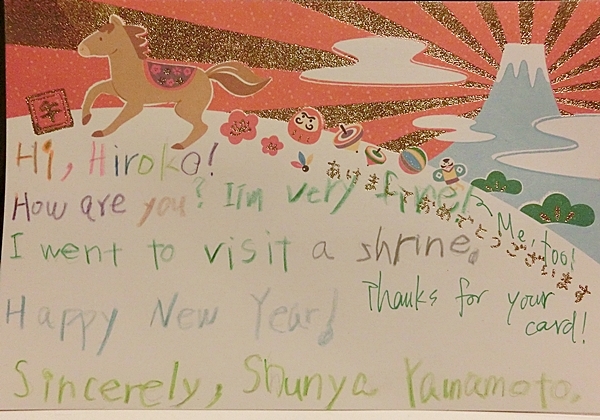 午
あけましておめでとうございます
Hi, Hiroko!
How are you? I'm very fine!
Me, too!
I went to visit a shrine.
Thanks for your card!
Happy New Year!
Sincerely, Shunya Yamamoto.